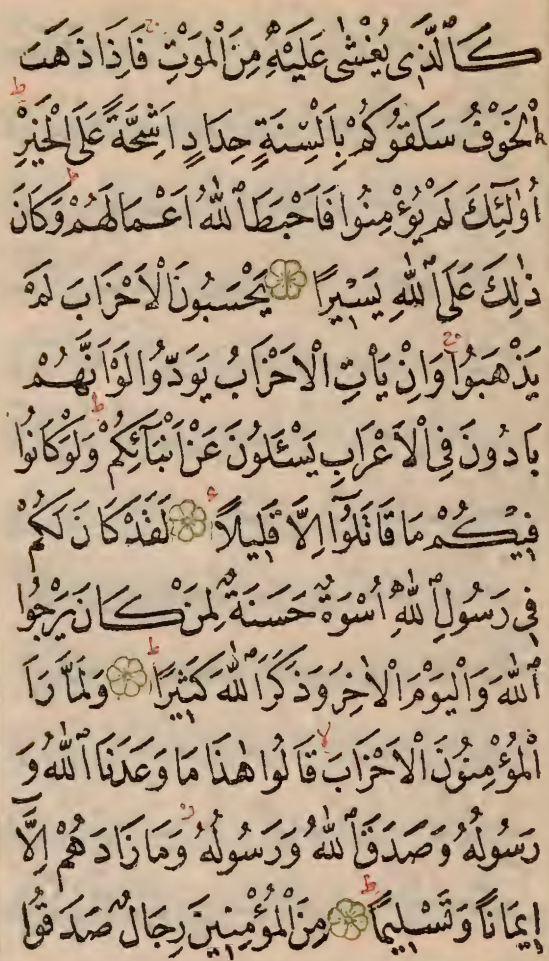 كَالَّذٖى يُغْشٰى عَلَيْهِ مِنَ الْمَوْتِۚ فَاِذَا ذَهَبَ
الْخَوْفُ سَلَقُوكُمْ بِاَلْسِنَةٍ حِدَادٍ اَشِحَّةً عَلَى الْخَيْرِؕ
اُولٰئِكَ لَمْ يُؤْمِنُوا فَاَحْبَطَ اللّٰهُ اَعْمَالَهُمْؕ وَكَانَ
ذٰلِكَ عَلَى اللّٰهِ يَسٖيرًا يَحْسَبُونَ الْاَحْزَابَ لَمْ
يَذْهَبُواۚ وَاِنْ يَاْتِ الْاَحْزَابُ يَوَدُّوا لَوْ اَنَّهُمْ
بَادُونَ فِى الْاَعْرَابِ يَسْئَلُونَ عَنْ اَنْبَٓائِكُمْؕ وَلَوْ كَانُوا
فٖيكُمْ مَا قَاتَلُٓوا اِلَّا قَلٖيلًا ع لَقَدْ كَانَ لَكُمْ
فٖى رَسُولِ اللّٰهِ اُسْوَةٌ حَسَنَةٌ لِمَنْ كَانَ يَرْجُوا
اللّٰهَ وَالْيَوْمَ الْاٰخِرَ وَذَكَرَ اللّٰهَ كَثٖيرًاؕ وَلَمَّا رَاَ
الْمُؤْمِنُونَ الْاَحْزَابَۙ قَالُوا هٰذَا مَا وَعَدَنَا اللّٰهُ وَ
رَسُولُهُ وَصَدَقَ اللّٰهُ وَرَسُولُهُؗ وَمَا زَادَهُمْ اِلَّٓا
اٖيمَانًا وَتَسْلٖيمًاؕ مِنَ الْمُؤْمِنٖينَ رِجَالٌ صَدَقُوا